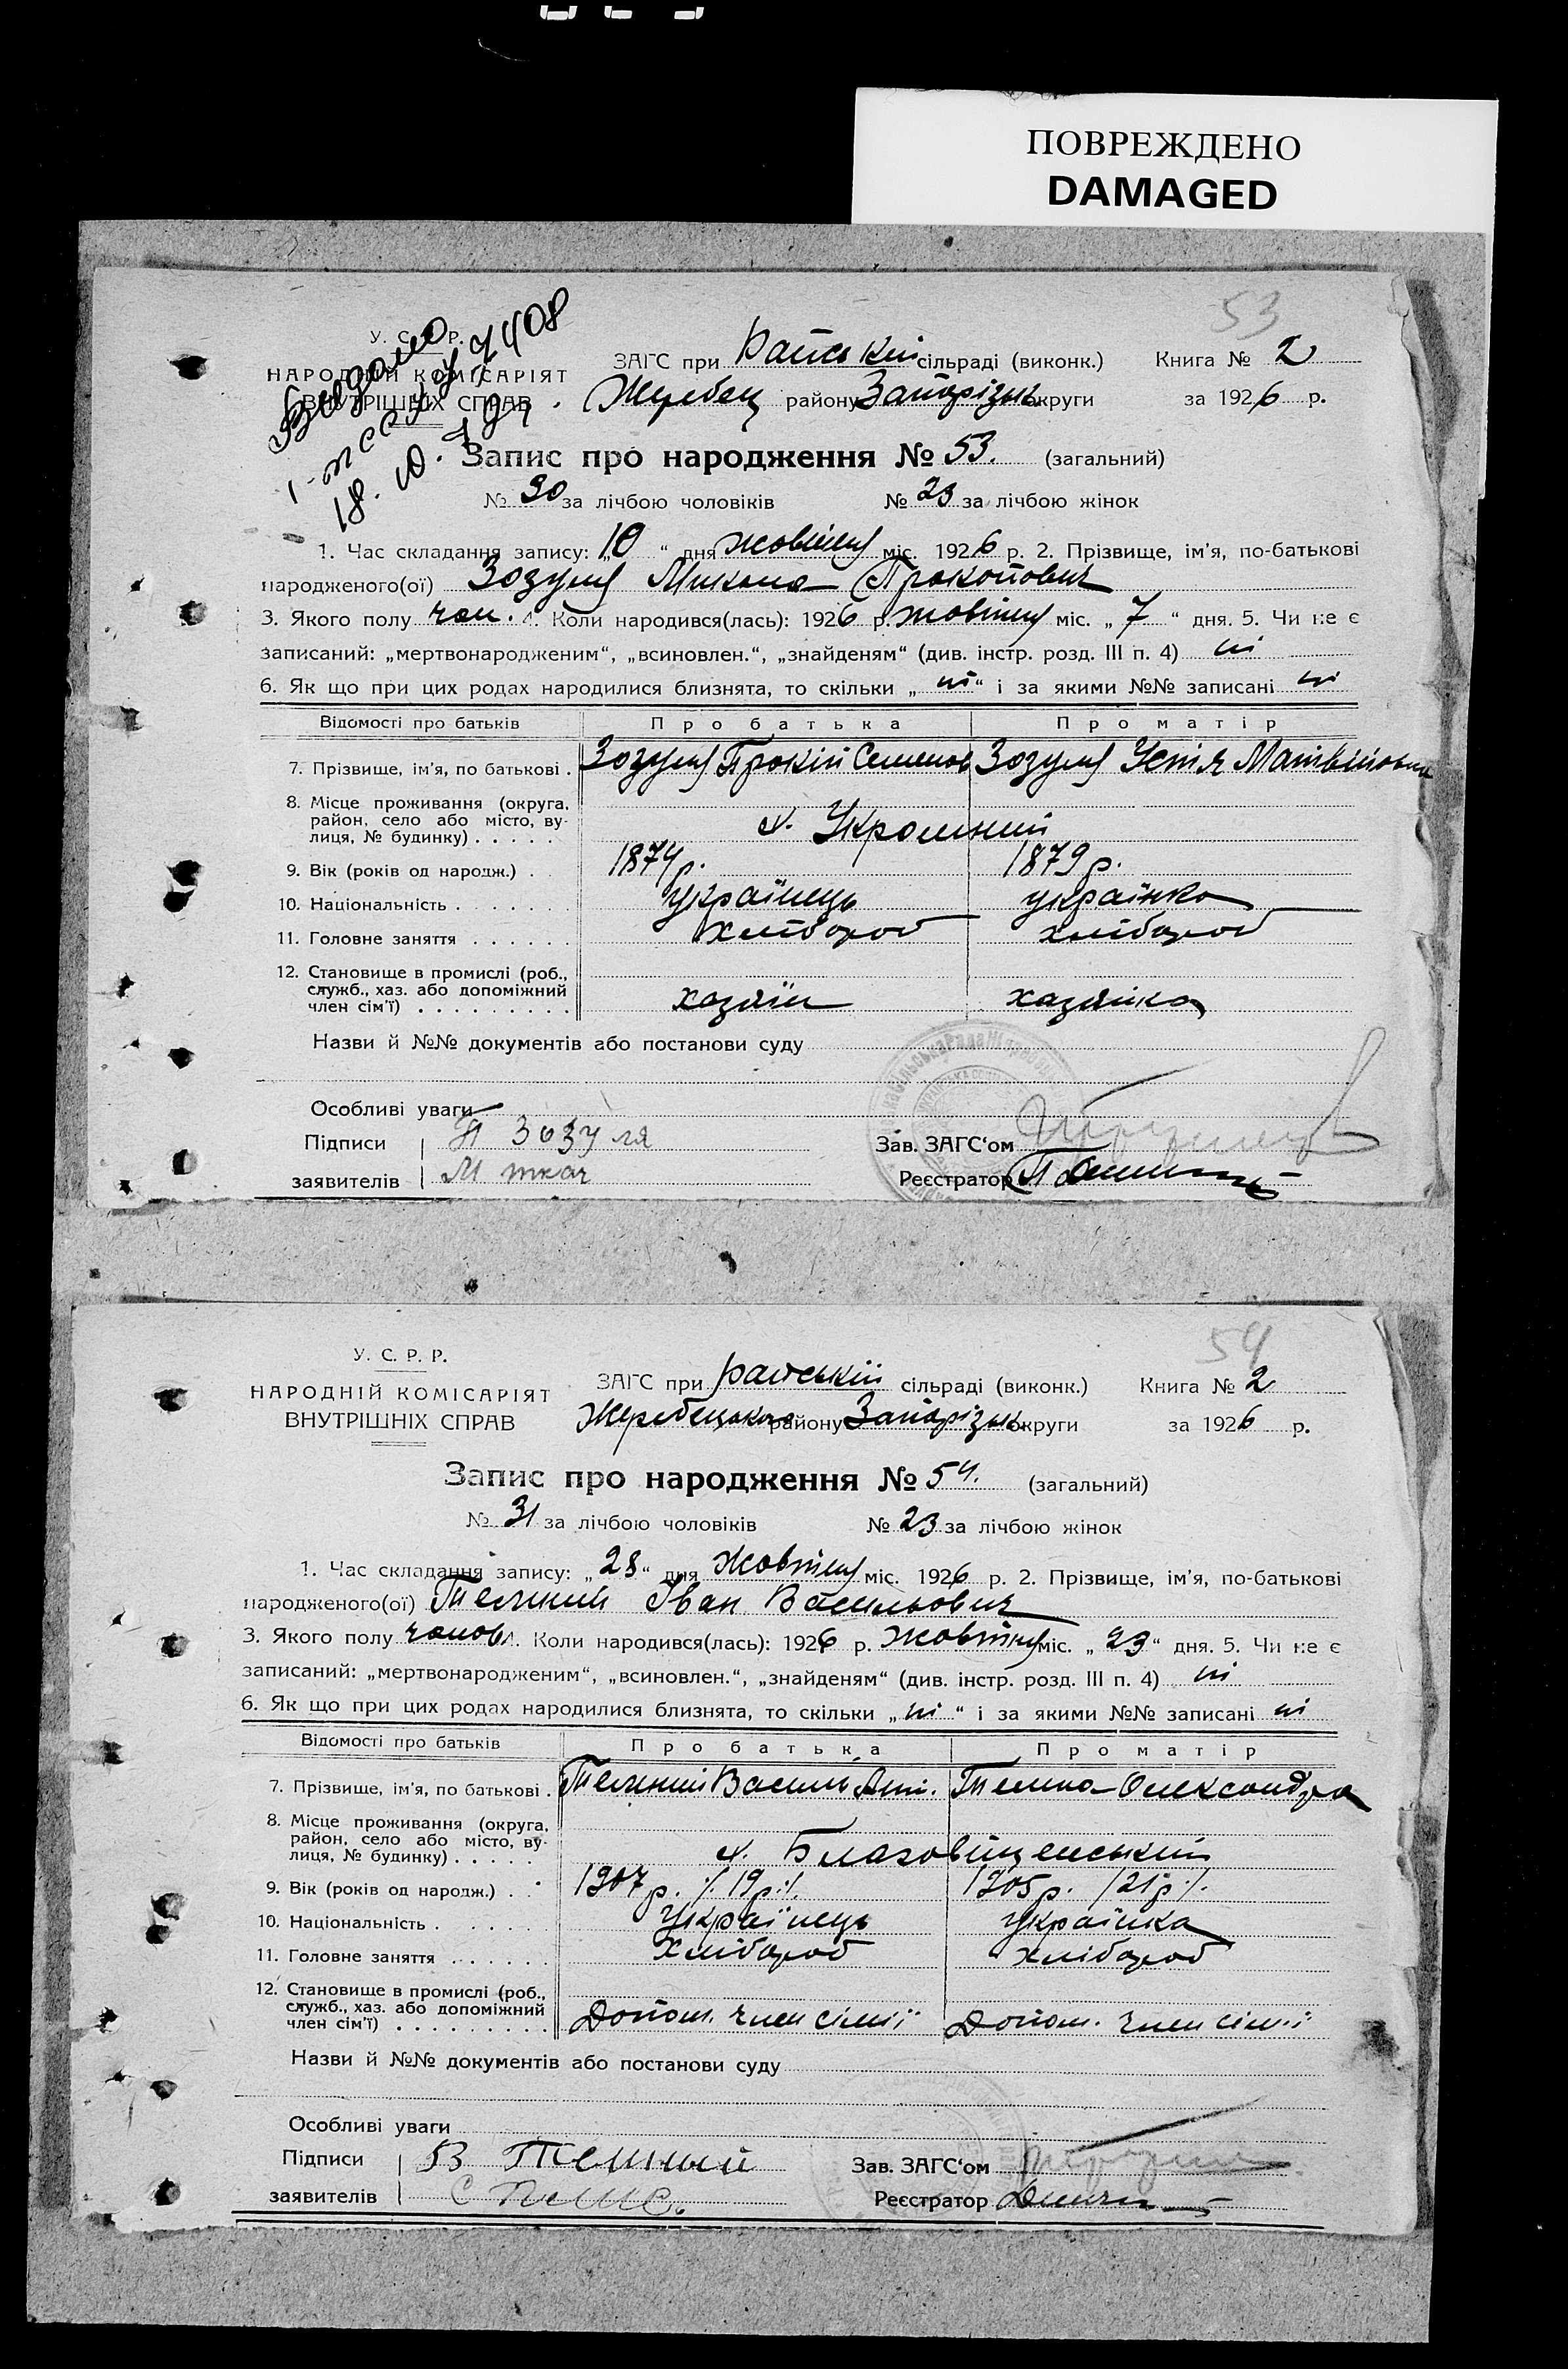 ПОВРЕЖДЕНО
DAMAGED
53
У. С. Р. Р.
НАРОДНІЙ КОМІСАРІЯТ
ВНУТРІШНІХ СПРАВ
Видано
18. 10.
ЗАГС при Райській сільраді (виконк.) Книга № 2
Жеребец району Запорізьк. округи за 1926 р.
Запис про народження № 53. (загальний)
№ 30 за лічбою чоловіків № 23 за лічбою жінок
1. Час складання запису: „10“ дня жовтня міс. 1926 р. 2. Прізвище, ім’я, по-батькові
народженого(ої) Зозуля Микола Прокопович
3. Якого полу чол. 4. Коли народився(лась): 1926 р. жовтня міс. „7“ дня. 5. Чи не є
записаний: „мертвонародженим“, „всиновлен.“, „знайденям“ (див. інстр. розд. III п. 4) ні
6. Як що при цих родах народилися близнята, то скільки „ні“ і за якими №№ записані ні
Відомості про батьків Про батька Про матір
7. Прізвище, ім’я, по батькові . Зозуля Прокіп Семенов Зозуля Устя Матвіївна
8. Місце проживання (округа,
район, село або місто, ву-
лиця, № будинку) . . . . . х. Укромний
9. Вік (років од народж.) . . 1874 р. 1879 р.
10. Національність . . . . . . українець українка
11. Головне заняття . . . . . . хлібороб хлібороб
12. Становище в промислі (роб.,
служб., хаз. або допоміжний
член сім’ї) . . . . . . . . . хазяїн хазяйка
Назви й №№ документів або постанови суду
Особливі уваги
Підписи П Зозуля Зав. ЗАГС‘ом
заявителів М ткач Реєстратор
54
У. С. Р. Р.
НАРОДНІЙ КОМІСАРІЯТ
ВНУТРІШНІХ СПРАВ
ЗАГС при райській сільраді (виконк.) Книга № 2
Жеребецького району Запорізьк. округи за 1926 р.
Запис про народження № 54. (загальний)
№ 31 за лічбою чоловіків № 23 за лічбою жінок
1. Час складання запису: „28“ дня Жовтня міс. 1926 р. 2. Прізвище, ім’я, по-батькові
народженого(ої) Темний Іван Васильович
3. Якого полу чолов. 4. Коли народився(лась): 1926 р. Жовтня міс. „23“ дня. 5. Чи не є
записаний: „мертвонародженим“, „всиновлен.“, „знайденям“ (див. інстр. розд. III п. 4) ні
6. Як що при цих родах народилися близнята, то скільки „ні“ і за якими №№ записані ні
Відомості про батьків Про батька Про матір
7. Прізвище, ім’я, по батькові . Темний Василь Темна Олександра
8. Місце проживання (округа,
район, село або місто, ву-
лиця, № будинку) . . . . . х. Благовіщенський
9. Вік (років од народж.) . . 1907 р. /19 р./. 1905 р. /21 р./.
10. Національність . . . . . Українець Українка
11. Головне заняття . . . . . . Хлібороб хлібороб
12. Становище в промислі (роб.,
служб., хаз. або допоміжний
член сім’ї) . . . . . . . . . Допом. член сімї Допом. член сімї
Назви й №№ документів або постанови суду
Особливі уваги
Підписи В Темный Зав. ЗАГС‘ом
заявителів Реєстратор